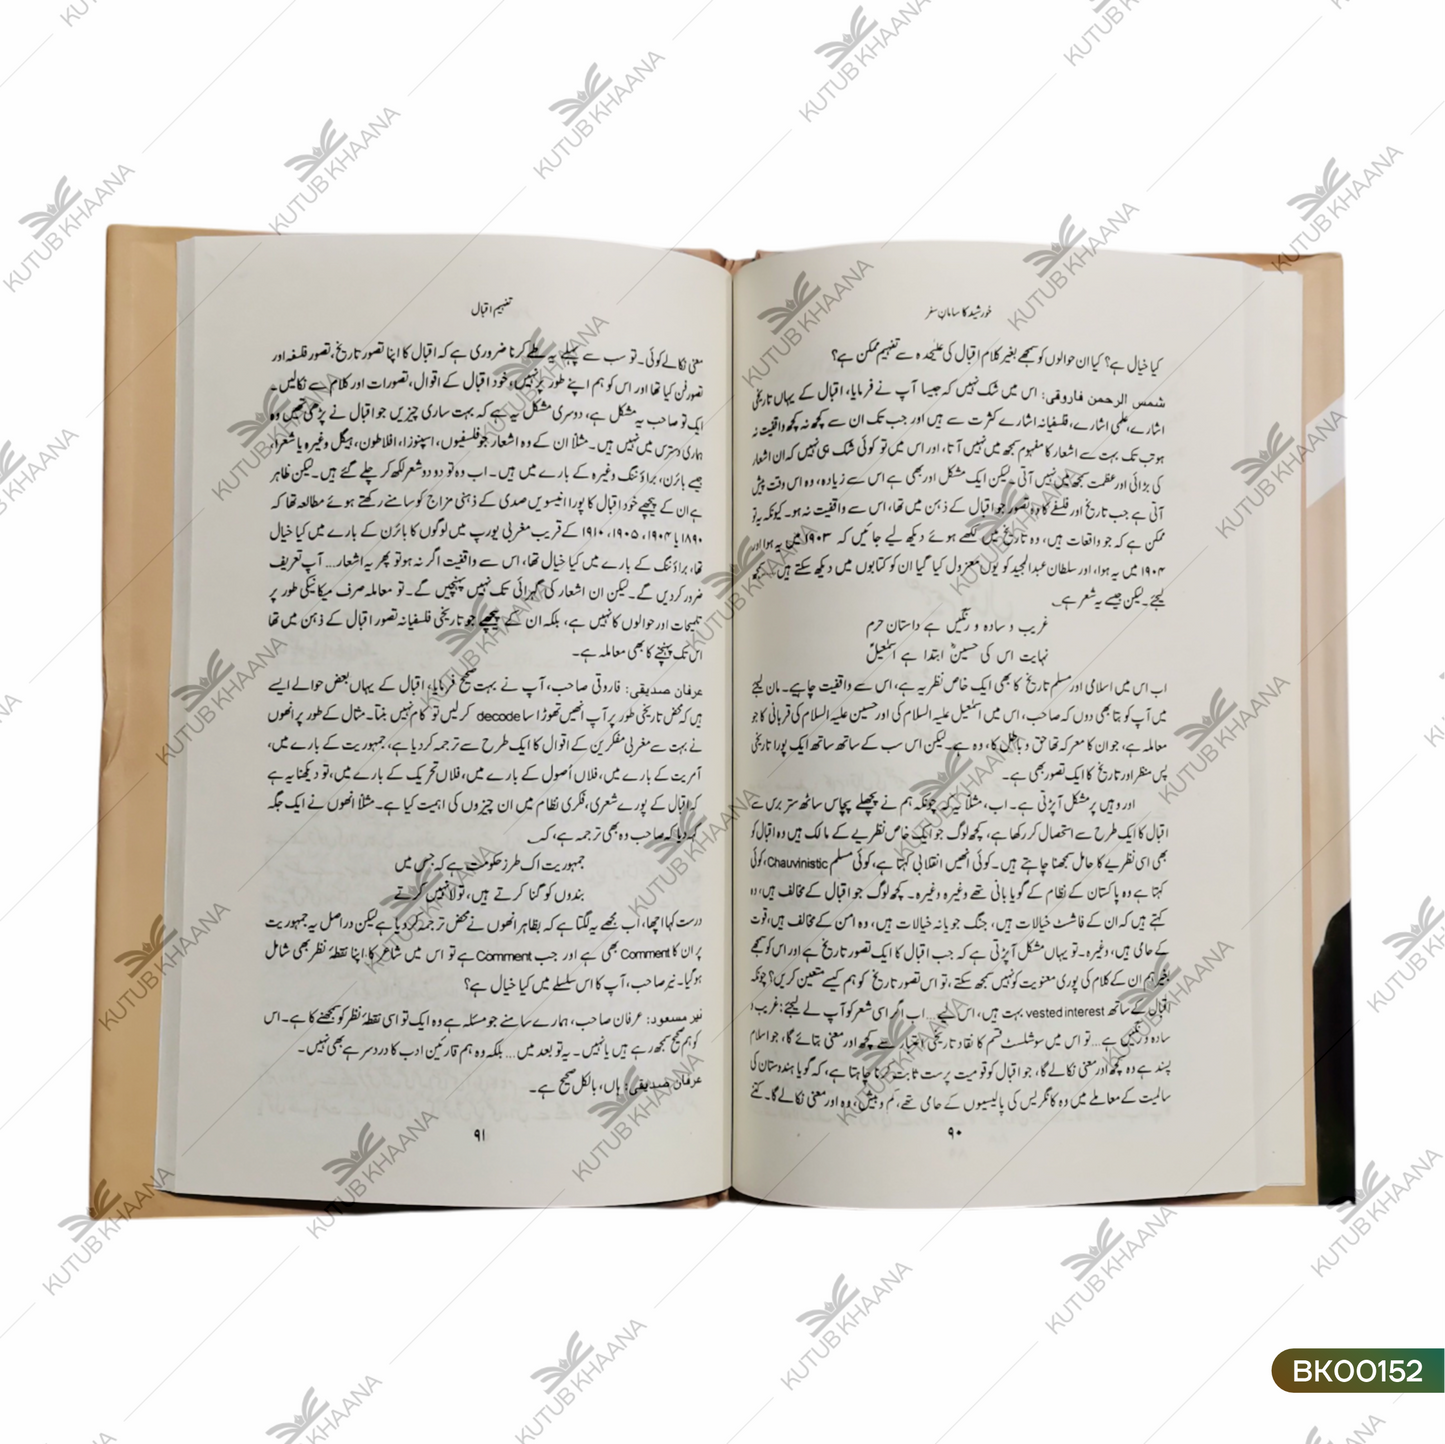 خورشید کا سامانِ سفر
کیا خیال ہے؟ کیا ان حوالوں کو سمجھے بغیر کلام اقبال کی علیٰحدہ سے تفہیم ممکن ہے؟
شمس الرحمن فاروقی: اس میں شک نہیں کہ جیسا آپ نے فرمایا، اقبال کے یہاں تاریخی
اشارے، علمی اشارے، فلسفیانہ اشارے کثرت سے ہیں اور جب تک ان سے کچھ نہ کچھ واقفیت نہ
ہو تب تک بہت سے اشعار کا مفہوم سمجھ میں نہیں آتا، اور اس میں تو کوئی شک ہی نہیں کہ ان اشعار
کی بڑائی اور عظمت سمجھ میں نہیں آتی۔ لیکن ایک مشکل اور بھی ہے اس سے زیادہ، وہ اس وقت پیش
آتی ہے جب تاریخ اور فلسفے کا وہ تصور جو اقبال کے ذہن میں تھا، اس سے واقفیت نہ ہو۔ کیونکہ یہ تو
ممکن ہے کہ جو واقعات ہیں، وہ تاریخ میں لکھے ہوئے دیکھ لیے جائیں کہ ۱۹۰۳ میں یہ ہوا اور
۱۹۰۴ میں یہ ہوا، اور سلطان عبدالمجید کو یوں معزول کیا گیا ان کو کتابوں میں دیکھ سکتے ہیں، سمجھ
لیجئے۔ لیکن جیسے یہ شعر ہے۔
غریب و سادہ و رنگیں ہے داستان حرم
نہایت اس کی حسینؓ ابتدا ہے اسمٰعیلؑ
اب اس میں اسلامی اور مسلم تاریخ کا بھی ایک خاص نظریہ ہے، اس سے واقفیت چاہیے۔ مان لیجئے
میں آپ کو بتا بھی دوں کہ صاحب، اس میں اسمٰعیل علیہ السلام کی اور حسین علیہ السلام کی قربانی کا جو
معاملہ ہے، جو ان کا معرکہ تھا حق و باطل کا، وہ ہے۔ لیکن اس سب کے ساتھ ساتھ ایک پورا تاریخی
پس منظر اور تاریخ کا ایک تصور بھی ہے۔
اور وہیں پر مشکل آ پڑتی ہے۔ اب، مثلاً یہ کہ چونکہ ہم نے پچھلے پچاس ساٹھ ستر برس سے
اقبال کا ایک طرح سے استحصال کر رکھا ہے، کچھ لوگ جو ایک خاص نظریے کے مالک ہیں وہ اقبال کو
بھی اسی نظریے کا حامل سمجھنا چاہتے ہیں۔ کوئی انھیں انقلابی کہتا ہے، کوئی مسلم Chauvinistic، کوئی
کہتا ہے وہ پاکستان کے نظام کے گویا بانی تھے وغیرہ وغیرہ۔ کچھ لوگ جو اقبال کے مخالف ہیں، وہ
کہتے ہیں کہ ان کے فاشسٹ خیالات ہیں، جنگ جویانہ خیالات ہیں، وہ امن کے مخالف ہیں، قوت
کے حامی ہیں، وغیرہ۔ تو یہاں مشکل آ پڑتی ہے کہ جب اقبال کا ایک تصور تاریخ ہے اور اس کو سمجھے
بغیر ہم ان کے کلام کی پوری معنویت کو نہیں سمجھ سکتے، تو اس تصور تاریخ کو ہم کیسے متعین کریں؟ چونکہ
اقبال کے ساتھ vested interest بہت ہیں، اس لیے... اب اگر اسی شعر کو آپ لے لیجئے: غریب و
سادہ و رنگیں ہے... تو اس میں سوشلسٹ قسم کا نقاد تاریخی اعتبار سے کچھ اور معنی بتائے گا، جو اسلام
پسند ہے وہ کچھ اور معنی نکالے گا، جو اقبال کو قومیت پرست ثابت کرنا چاہتا ہے، کہ گویا ہندوستان کی
سالمیت کے معاملے میں وہ کانگریس کی پالیسیوں کے حامی تھے، کم و بیش، وہ اور معنی نکالے گا۔ کتنے
۹۰
تفہیم اقبال
معنی نکالے کوئی۔ تو سب سے پہلے یہ طے کرنا ضروری ہے کہ اقبال کا اپنا تصور تاریخ، تصور فلسفہ اور
تصور فن کیا تھا اور اس کو ہم اپنے طور پر نہیں، خود اقبال کے اقوال، تصورات اور کلام سے نکالیں۔
ایک تو صاحب یہ مشکل ہے، دوسری مشکل یہ ہے کہ بہت ساری چیزیں جو اقبال نے پڑھی تھیں وہ
ہماری دسترس میں نہیں ہیں۔ مثلاً ان کے وہ اشعار جو فلسفیوں، اسپنوزا، افلاطون، ہیگل وغیرہ یا شعراء،
جیسے بائرن، براؤننگ وغیرہ کے بارے میں ہیں۔ اب وہ تو دو دو شعر لکھ کر چلے گئے ہیں۔ لیکن ظاہر
ہے ان کے پیچھے خود اقبال کا پورا انیسویں صدی کے ذہنی مزاج کو سامنے رکھتے ہوئے مطالعہ تھا کہ
۱۸۹۰ یا ۱۹۰۴، ۱۹۰۵، ۱۹۱۰ کے قریب مغربی یورپ میں لوگوں کا بائرن کے بارے میں کیا خیال
تھا، براؤننگ کے بارے میں کیا خیال تھا، اس سے واقفیت اگر نہ ہو تو پھر یہ اشعار... آپ تعریف
ضرور کر دیں گے۔ لیکن ان اشعار کی گہرائی تک نہیں پہنچیں گے۔ تو معاملہ صرف میکانیکی طور پر
تلمیحات اور حوالوں کا نہیں ہے، بلکہ ان کے پیچھے جو تاریخی فلسفیانہ تصور اقبال کے ذہن میں تھا
اس تک پہنچنے کا بھی معاملہ ہے۔
عرفان صدیقی: فاروقی صاحب، آپ نے بہت صحیح فرمایا، اقبال کے یہاں بعض حوالے ایسے
ہیں کہ محض تاریخی طور پر آپ انھیں تھوڑا سا decode کر لیں تو کام نہیں بنتا۔ مثال کے طور پر انھوں
نے بہت سے مغربی مفکرین کے اقوال کا ایک طرح سے ترجمہ کر دیا ہے، جمہوریت کے بارے میں،
آمریت کے بارے میں، فلاں اُصول کے بارے میں، فلاں تحریک کے بارے میں، تو دیکھنا یہ ہے
کہ اقبال کے پورے شعری، فکری نظام میں ان چیزوں کی اہمیت کیا ہے۔ مثلاً انھوں نے ایک جگہ
کہہ دیا کہ صاحب وہ بھی ترجمہ ہے، کہ۔
جمہوریت اک طرز حکومت ہے کہ جس میں
بندوں کو گنا کرتے ہیں، تولا نہیں کرتے
درست کہا اچھا، اب مجھے یہ لگتا ہے کہ بظاہر انھوں نے محض ترجمہ کر دیا ہے لیکن دراصل یہ جمہوریت
پر ان کا Comment بھی ہے اور جب Comment ہے تو اس میں شاعر کا اپنا نقطۂ نظر بھی شامل
ہو گیا۔ نیر صاحب، آپ کا اس سلسلے میں کیا خیال ہے؟
نیر مسعود: عرفان صاحب، ہمارے سامنے جو مسئلہ ہے وہ ایک تو اسی نقطۂ نظر کو سمجھنے کا ہے۔ اس
کو ہم صحیح سمجھ رہے ہیں یا نہیں۔ یہ تو بعد میں... بلکہ وہ ہم قارئین ادب کا درد سر ہے بھی نہیں۔
عرفان صدیقی: ہاں، بالکل صحیح ہے۔
۹۱
KUTUB KHAANA
BK00152